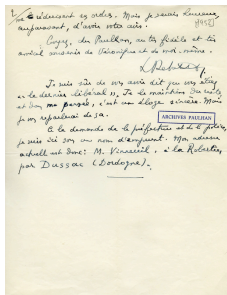 ces ordres. Mais je serais heureux
auparavant, d'avoir votre avis.
Croyez, cher Paulhan, au très fidèle et très
amical souvenir de Véronique et de moi-même.
[1958]
Je suis sûr de vous avoir dit que vous étiez
"le dernier libéral". Je le maintiens
c'est un éloge sincère. Mais
je vous reparlerai de ça.
ARCHIVES PAULHAN
A la demande de la préfecture et de la police,
je suis ici sous un nom d'emprunt. Mon adresse
actuelle est donc : M. Vinneuil, à la Robertie
par Dussac (Dordogne).